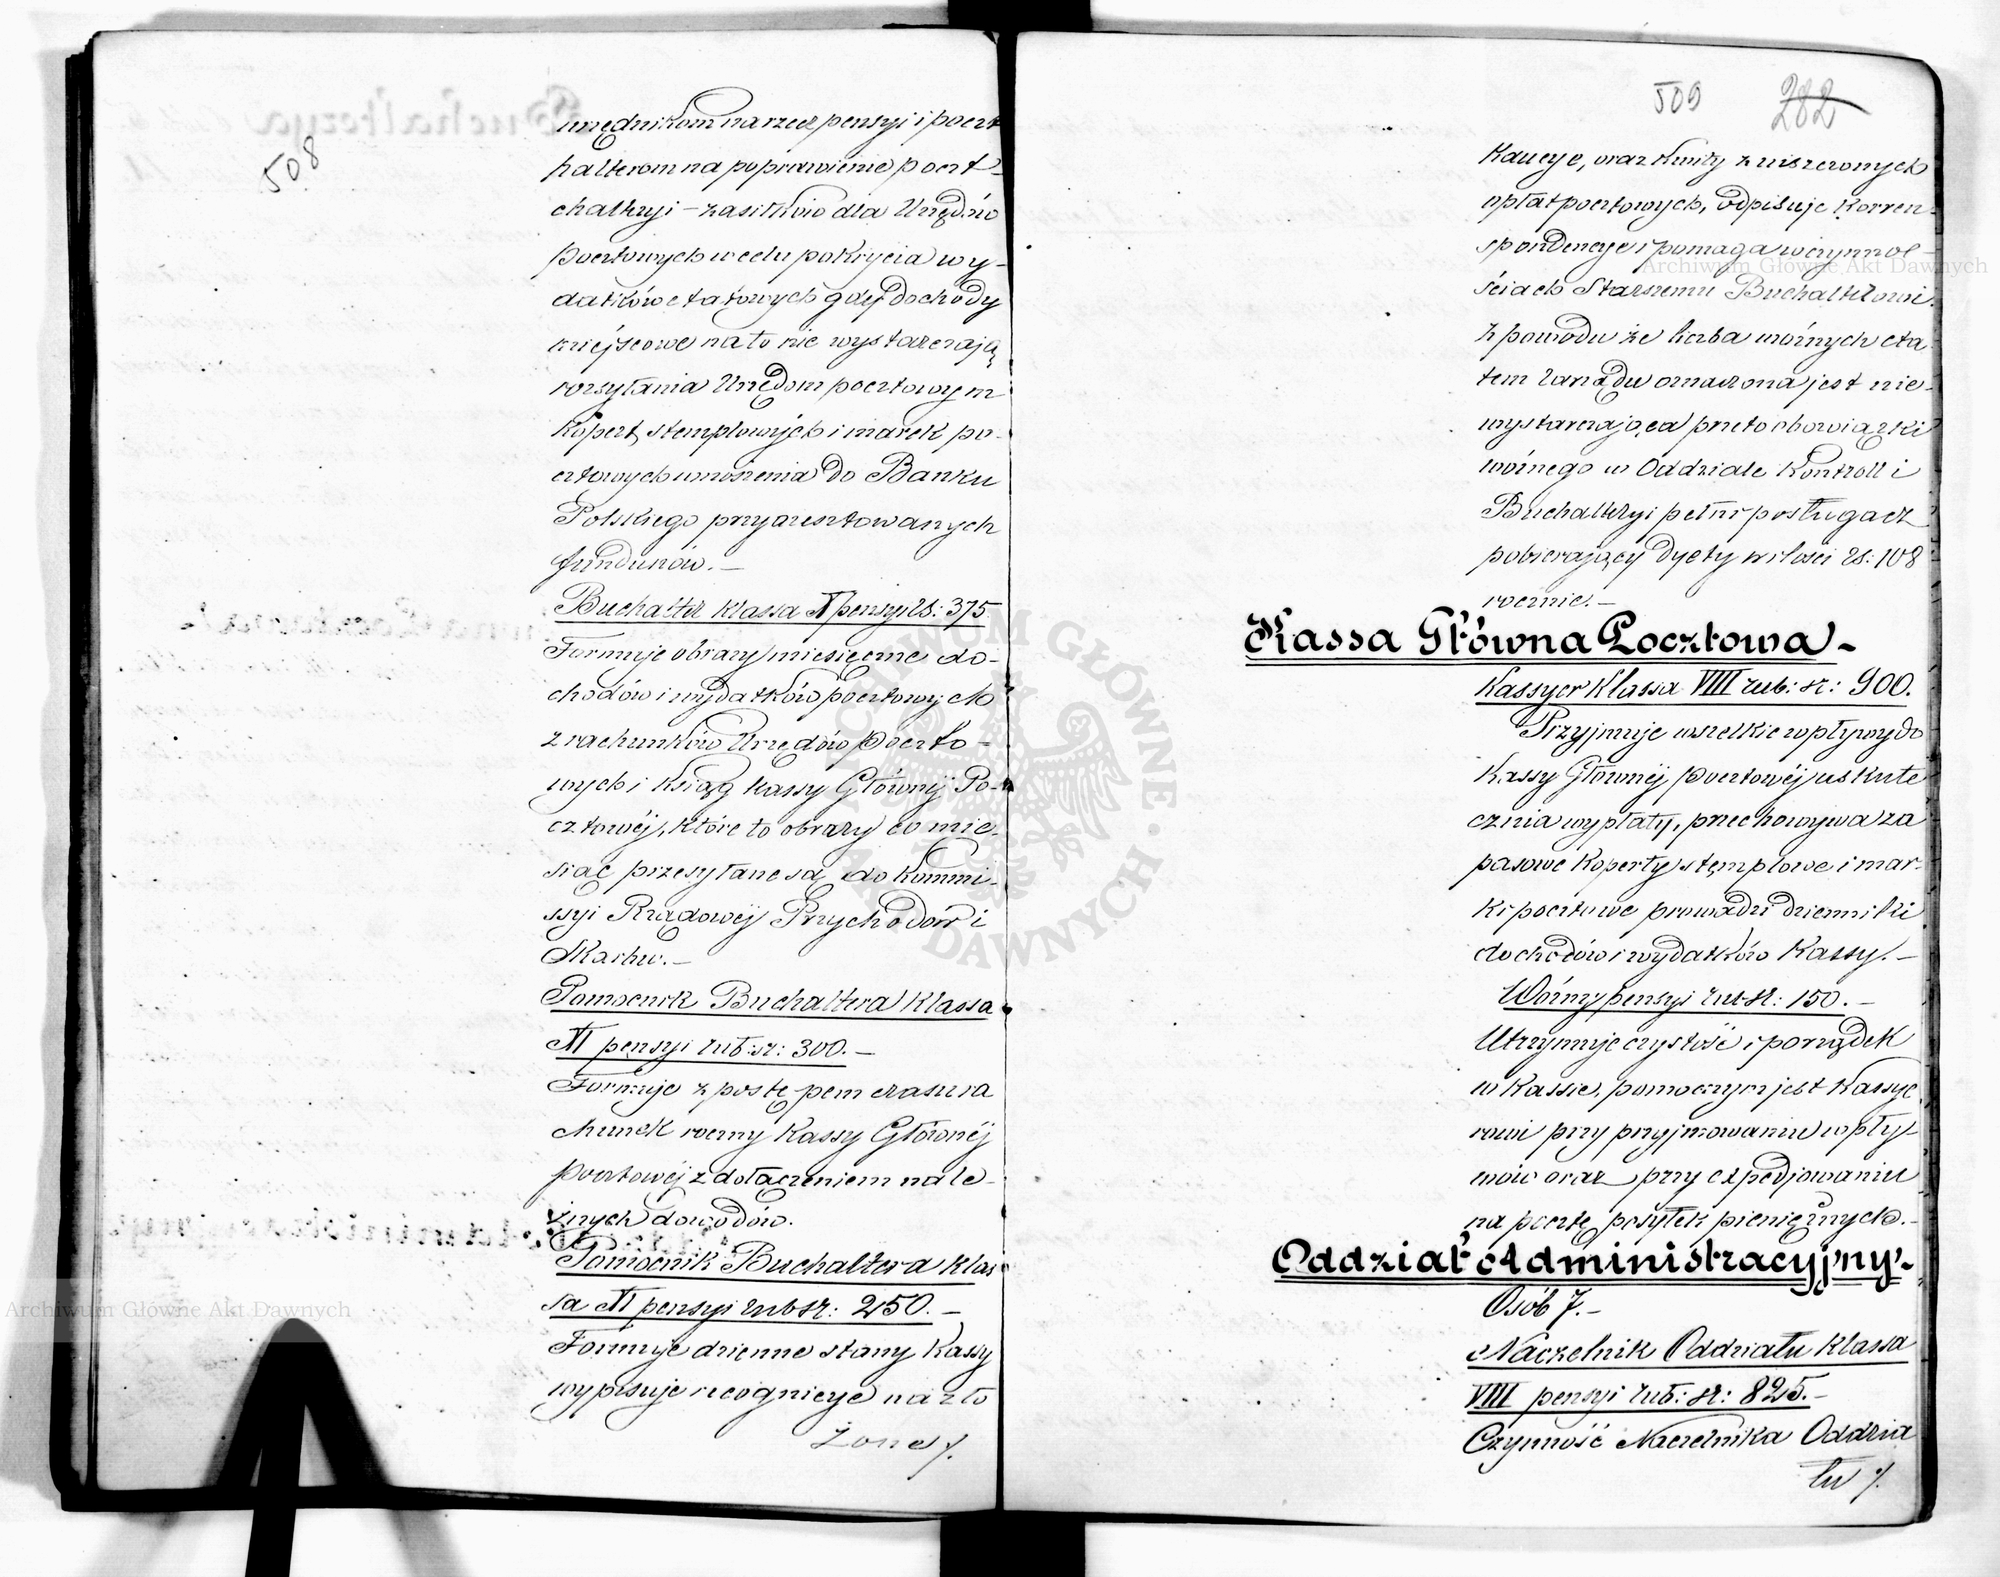 508
urzędnikom na rzecz pensyi i poczt
halterom na poprawienie poczt-
chalteryi – zasiłków dla Urzędów
pocztowych w celu pokrycia wy-
datków etatowych gdy dochody
miejscowe na to nie wystarczają
rozsyłania Urzędom pocztowym
kopert stemplowych i marek po-
cztowych wnoszenia do Banku
Polskiego przyaresztowanych
funduszów. –
Buchalter klassa XI pensyi rs: 375
Formuje obrazy miesięczne do-
chodów i wydatków pocztowych
z rachunków Urzędów Poczto-
wych i Ksiąg kassy Głównej Po-
cztowéj, które to obrazy co mie-
siąc przesyłane są do Kommi-
ssyi Rządowéj Przychodów i
Skarbu. –
Pomocnik Buchaltera klassa
XI pensyi rub: sr: 300. –
Formuje z postępem czasu ra
chunek roczny Kassy Głównéj
Pocztowéj z dołączeniem nale-
żnych dowodów.
Pomocnik Buchaltera klas
sa XI pensyi rubsr: 250. –
Formuje dzienne stany Kassy
wypisuje recognicye na zło
żone /.
509 282
Kaucye, oraz kwity z uiszczonych
opłat pocztowych, odpisuje korren-
spondencye i pomaga w czynno-
ściach Starszemu Buchalterowi.
Z powodu że liczba woźnych eta
tem Zarządu oznaczona jest nie-
wystarczającą przeto obowiązki
woźnego w Oddziale Kontroli i
Buchalteryi pełni posługacz
pobierający dyety w ilości rs: 108
rocznie. –
Kassa Główna Pocztowa –
Kassyer Klassa VIII rub: sr: 900.
Przyjmuje wszelkie wpływy do
Kassy Głównéj Pocztowéj uskute
cznia wypłaty, przechowywa za
pasowe Koperty stęplowe i mar-
ki pocztowe prowadzi dzienniki
dochodów i wydatków Kassy. –
Woźny pensyi rub sr: 150. –
Utrzymuje czystość i porządek
w Kassie, pomocnym jest Kassye
rowi przy przyjmowaniu wpły-
wów oraz przy expedjowaniu
na pocztę posyłek pieniężnych. –
Oddział Administracyjny –
Osób 7. –
Naczelnik Oddziału klassa
VIII pensyi rub: sr: 825. –
Czynność Naczelnika Oddzia
łu /.
Archiwum Główne Akt Dawnych
Archiwum Główne Akt Dawnych
ARCHIWUM GŁÓWNE AKT DAWNYCH